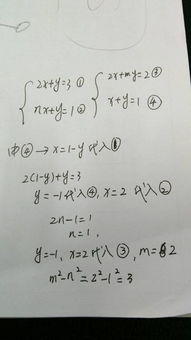 { 2x+y=3 ① { 2x+my=2 ③
nx+y=1 ② x+y=1 ④
由④→x=1-y 代入①
2(1-y)+y=3
y=-1代入④, x=2 代入②
2n-1=1
n=1,
y=-1, x=2代入③, m=2
m²-n²=2²-1²=3